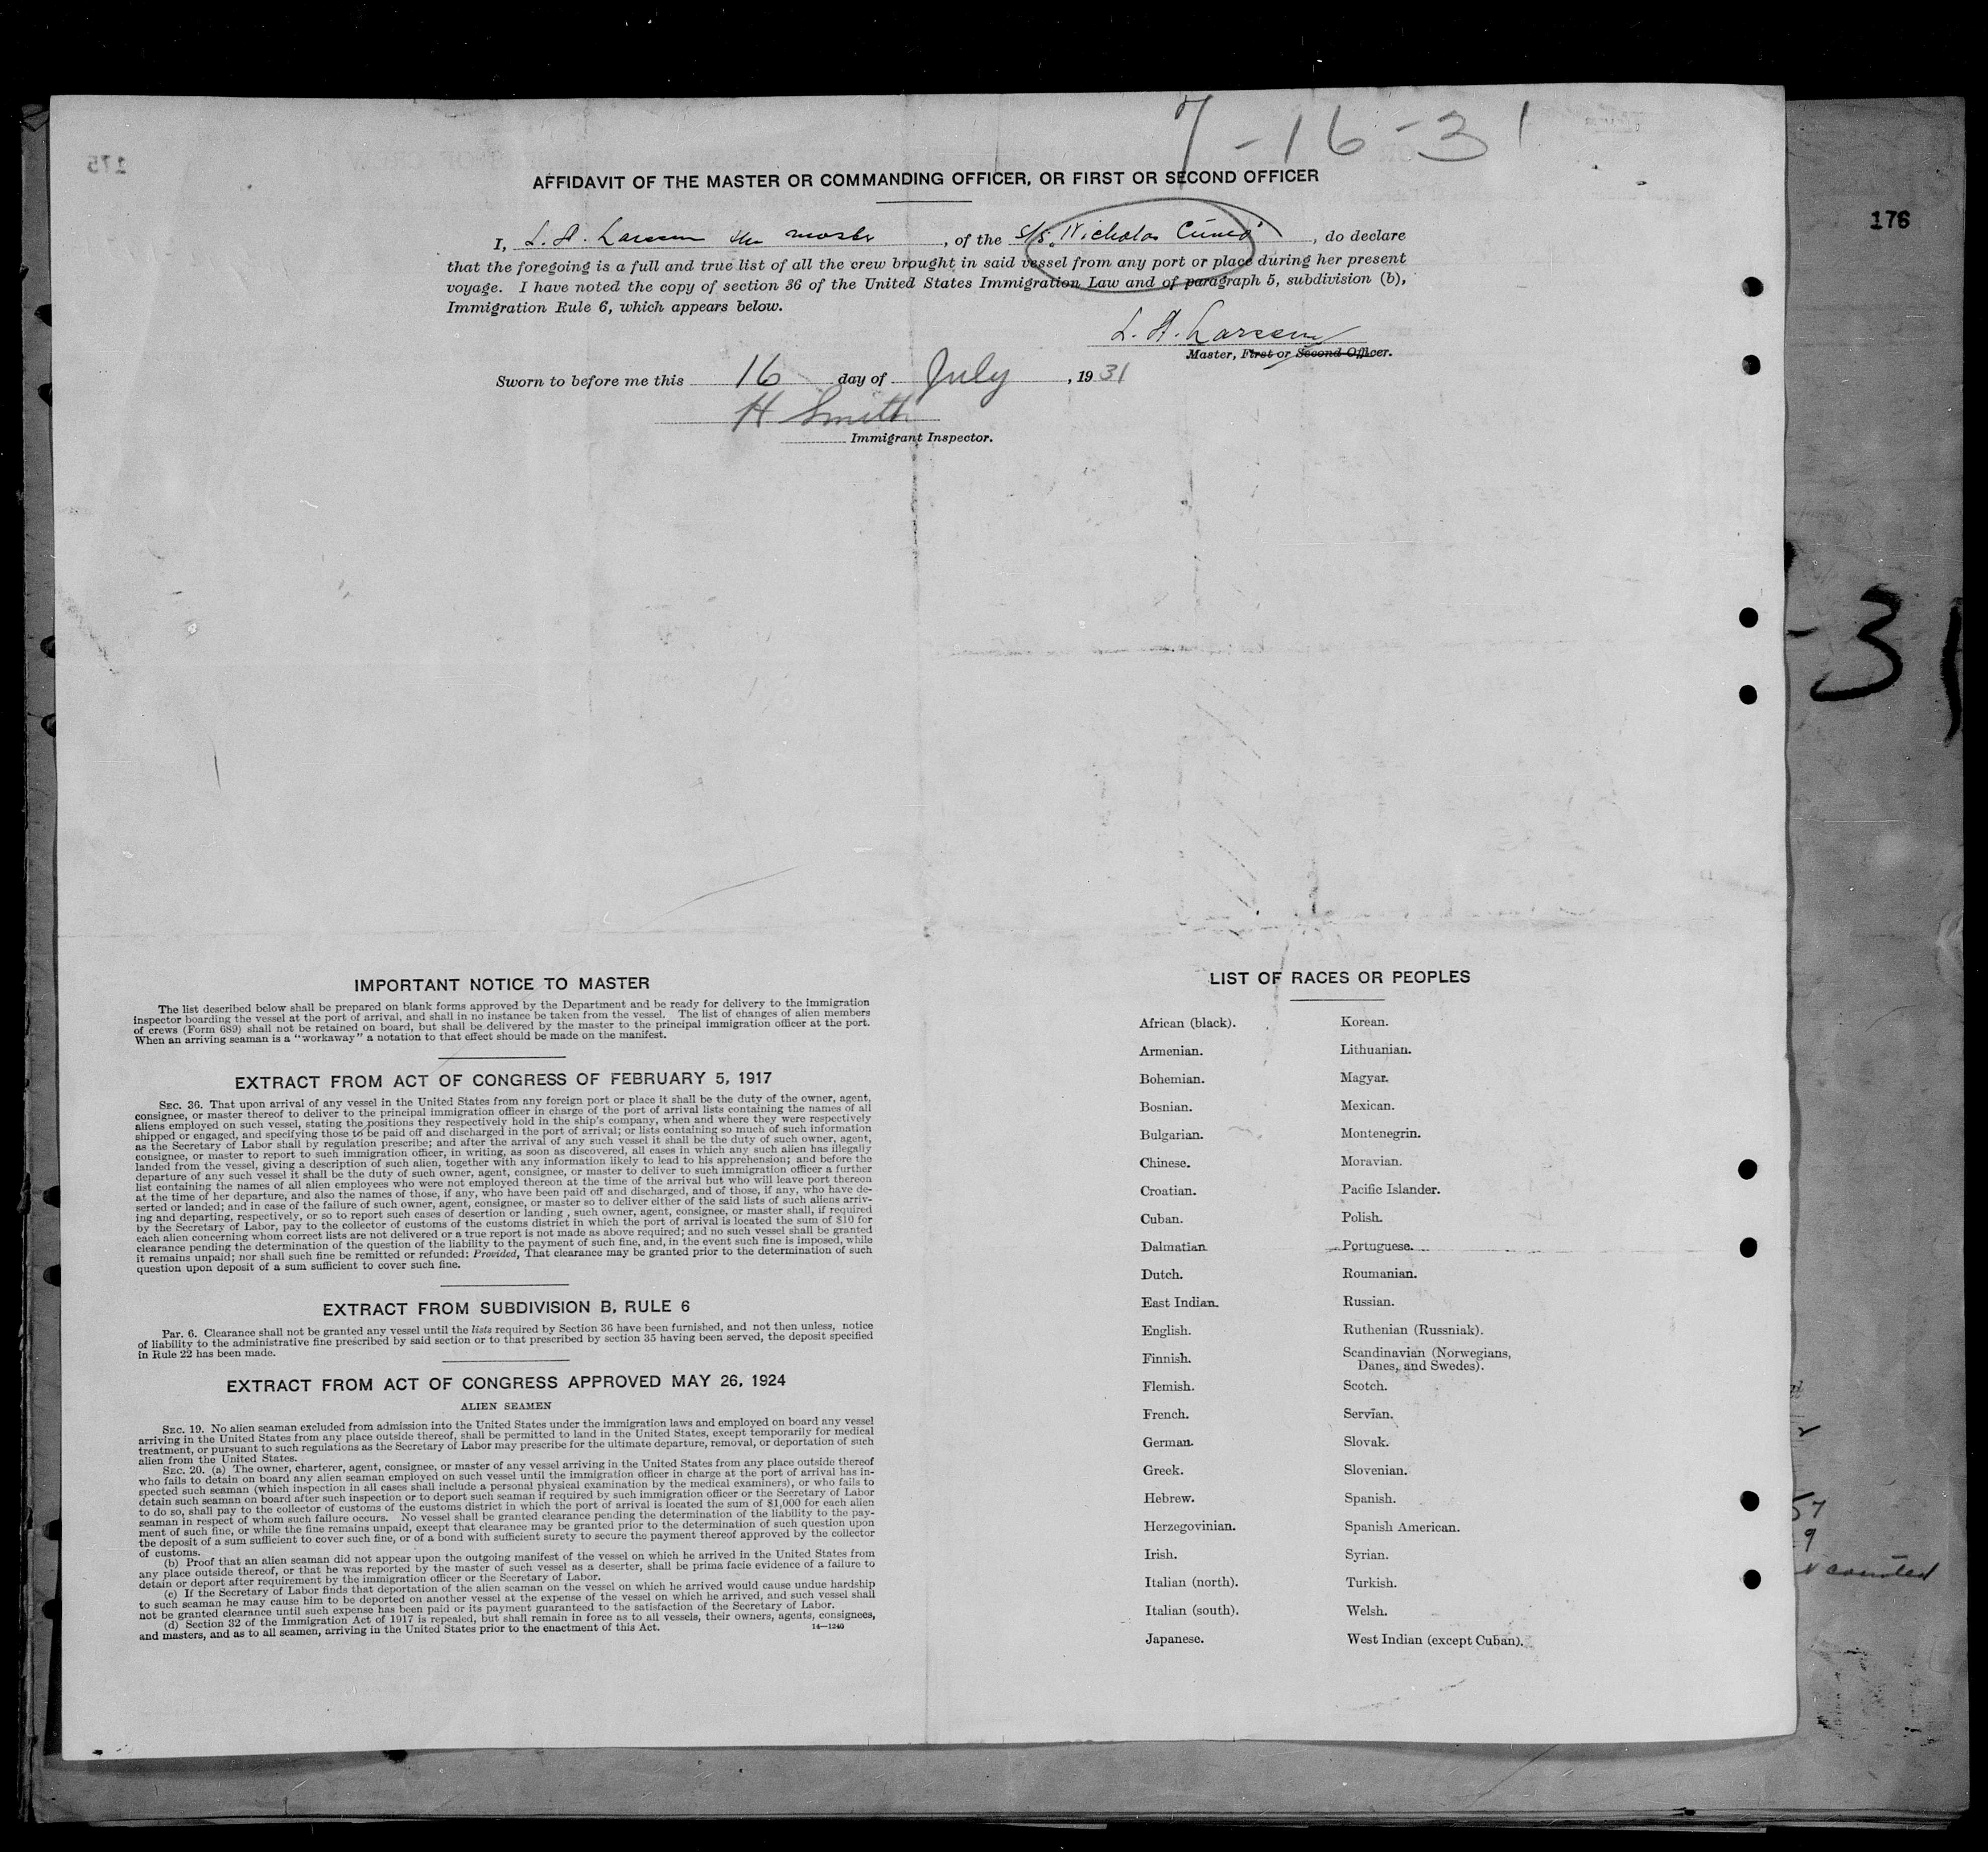 7-16-31
175
176
AFFIDAVIT OF THE MASTER OR COMMANDING OFFICER, OR FIRST OR SECOND OFFICER
I, L. A. Larsen the master, of the S/S. "Nicholas Cuneo", do declare
that the foregoing is a full and true list of all the crew brought in said vessel from any port or place during her present
voyage. I have noted the copy of section 36 of the United States Immigration Law and of paragraph 5, subdivision (b),
Immigration Rule 6, which appears below.
L. A. Larsen
Master, First or Second Officer.
Sworn to before me this 16 day of July, 1931
H Smith
Immigrant Inspector.
-31
IMPORTANT NOTICE TO MASTER
The list described below shall be prepared on blank forms approved by the Department and be ready for delivery to the immigration
inspector boarding the vessel at the port of arrival, and shall in no instance be taken from the vessel. The list of changes of alien members
of crews (Form 689) shall not be retained on board, but shall be delivered by the master to the principal immigration officer at the port.
When an arriving seaman is a "workaway" a notation to that effect should be made on the manifest.
EXTRACT FROM ACT OF CONGRESS OF FEBRUARY 5, 1917
SEC. 36. That upon arrival of any vessel in the United States from any foreign port or place it shall be the duty of the owner, agent,
consignee, or master thereof to deliver to the principal immigration officer in charge of the port of arrival lists containing the names of all
aliens employed on such vessel, stating the positions they respectively hold in the ship's company, when and where they were respectively
shipped or engaged, and specifying those to be paid off and discharged in the port of arrival; or lists containing so much of such information
as the Secretary of Labor shall by regulation prescribe; and after the arrival of any such vessel it shall be the duty of such owner, agent,
consignee, or master to report to such immigration officer, in writing, as soon as discovered, all cases in which any such alien has illegally
landed from the vessel, giving a description of such alien, together with any information likely to lead to his apprehension; and before the
departure of any such vessel it shall be the duty of such owner, agent, consignee, or master to deliver to such immigration officer a further
list containing the names of all alien employees who were not employed thereon at the time of the arrival but who will leave port thereon
at the time of her departure, and also the names of those, if any, who have been paid off and discharged, and of those, if any, who have de-
serted or landed; and in case of the failure of such owner, agent, consignee, or master so to deliver either of the said lists of such aliens arriv-
ing and departing, respectively, or so to report such cases of desertion or landing , such owner, agent, consignee, or master shall, if required
by the Secretary of Labor, pay to the collector of customs of the customs district in which the port of arrival is located the sum of $10 for
each alien concerning whom correct lists are not delivered or a true report is not made as above required; and no such vessel shall be granted
clearance pending the determination of the question of the liability to the payment of such fine, and, in the event such fine is imposed, while
it remains unpaid; nor shall such fine be remitted or refunded: Provided, That clearance may be granted prior to the determination of such
question upon deposit of a sum sufficient to cover such fine.
EXTRACT FROM SUBDIVISION B, RULE 6
Par. 6. Clearance shall not be granted any vessel until the lists required by Section 36 have been furnished, and not then unless, notice
of liability to the administrative fine prescribed by said section or to that prescribed by section 35 having been served, the deposit specified
in Rule 22 has been made.
EXTRACT FROM ACT OF CONGRESS APPROVED MAY 26, 1924
ALIEN SEAMEN
SEC. 19. No alien seaman excluded from admission into the United States under the immigration laws and employed on board any vessel
arriving in the United States from any place outside thereof, shall be permitted to land in the United States, except temporarily for medical
treatment, or pursuant to such regulations as the Secretary of Labor may prescribe for the ultimate departure, removal, or deportation of such
alien from the United States.
SEC. 20. (a) The owner, charterer, agent, consignee, or master of any vessel arriving in the United States from any place outside thereof
who fails to detain on board any alien seaman employed on such vessel until the immigration officer in charge at the port of arrival has in-
spected such seaman (which inspection in all cases shall include a personal physical examination by the medical examiners), or who fails to
detain such seaman on board after such inspection or to deport such seaman if required by such immigration officer or the Secretary of Labor
to do so, shall pay to the collector of customs of the customs district in which the port of arrival is located the sum of $1,000 for each alien
seaman in respect of whom such failure occurs. No vessel shall be granted clearance pending the determination of the liability to the pay-
ment of such fine, or while the fine remains unpaid, except that clearance may be granted prior to the determination of such question upon
the deposit of a sum sufficient to cover such fine, or of a bond with sufficient surety to secure the payment thereof approved by the collector
of customs.
(b) Proof that an alien seaman did not appear upon the outgoing manifest of the vessel on which he arrived in the United States from
any place outside thereof, or that he was reported by the master of such vessel as a deserter, shall be prima facie evidence of a failure to
detain or deport after requirement by the immigration officer or the Secretary of Labor.
(c) If the Secretary of Labor finds that deportation of the alien seaman on the vessel on which he arrived would cause undue hardship
to such seaman he may cause him to be deported on another vessel at the expense of the vessel on which he arrived, and such vessel shall
not be granted clearance until such expense has been paid or its payment guaranteed to the satisfaction of the Secretary of Labor.
(d) Section 32 of the Immigration Act of 1917 is repealed, but shall remain in force as to all vessels, their owners, agents, consignees,
and masters, and as to all seamen, arriving in the United States prior to the enactment of this Act. 14—1240
LIST OF RACES OR PEOPLES
African (black).
Armenian.
Bohemian.
Bosnian.
Bulgarian.
Chinese.
Croatian.
Cuban.
Dalmatian
Dutch.
East Indian.
English.
Finnish.
Flemish.
French.
German.
Greek.
Hebrew.
Herzegovinian.
Irish.
Italian (north).
Italian (south).
Japanese.
Korean.
Lithuanian.
Magyar.
Mexican.
Montenegrin.
Moravian.
Pacific Islander.
Polish.
Portuguese.
Roumanian.
Russian.
Ruthenian (Russniak).
Scandinavian (Norwegians,
Danes, and Swedes).
Scotch.
Servian.
Slovak.
Slovenian.
Spanish.
Spanish American.
Syrian.
Turkish.
Welsh.
West Indian (except Cuban).
57
9